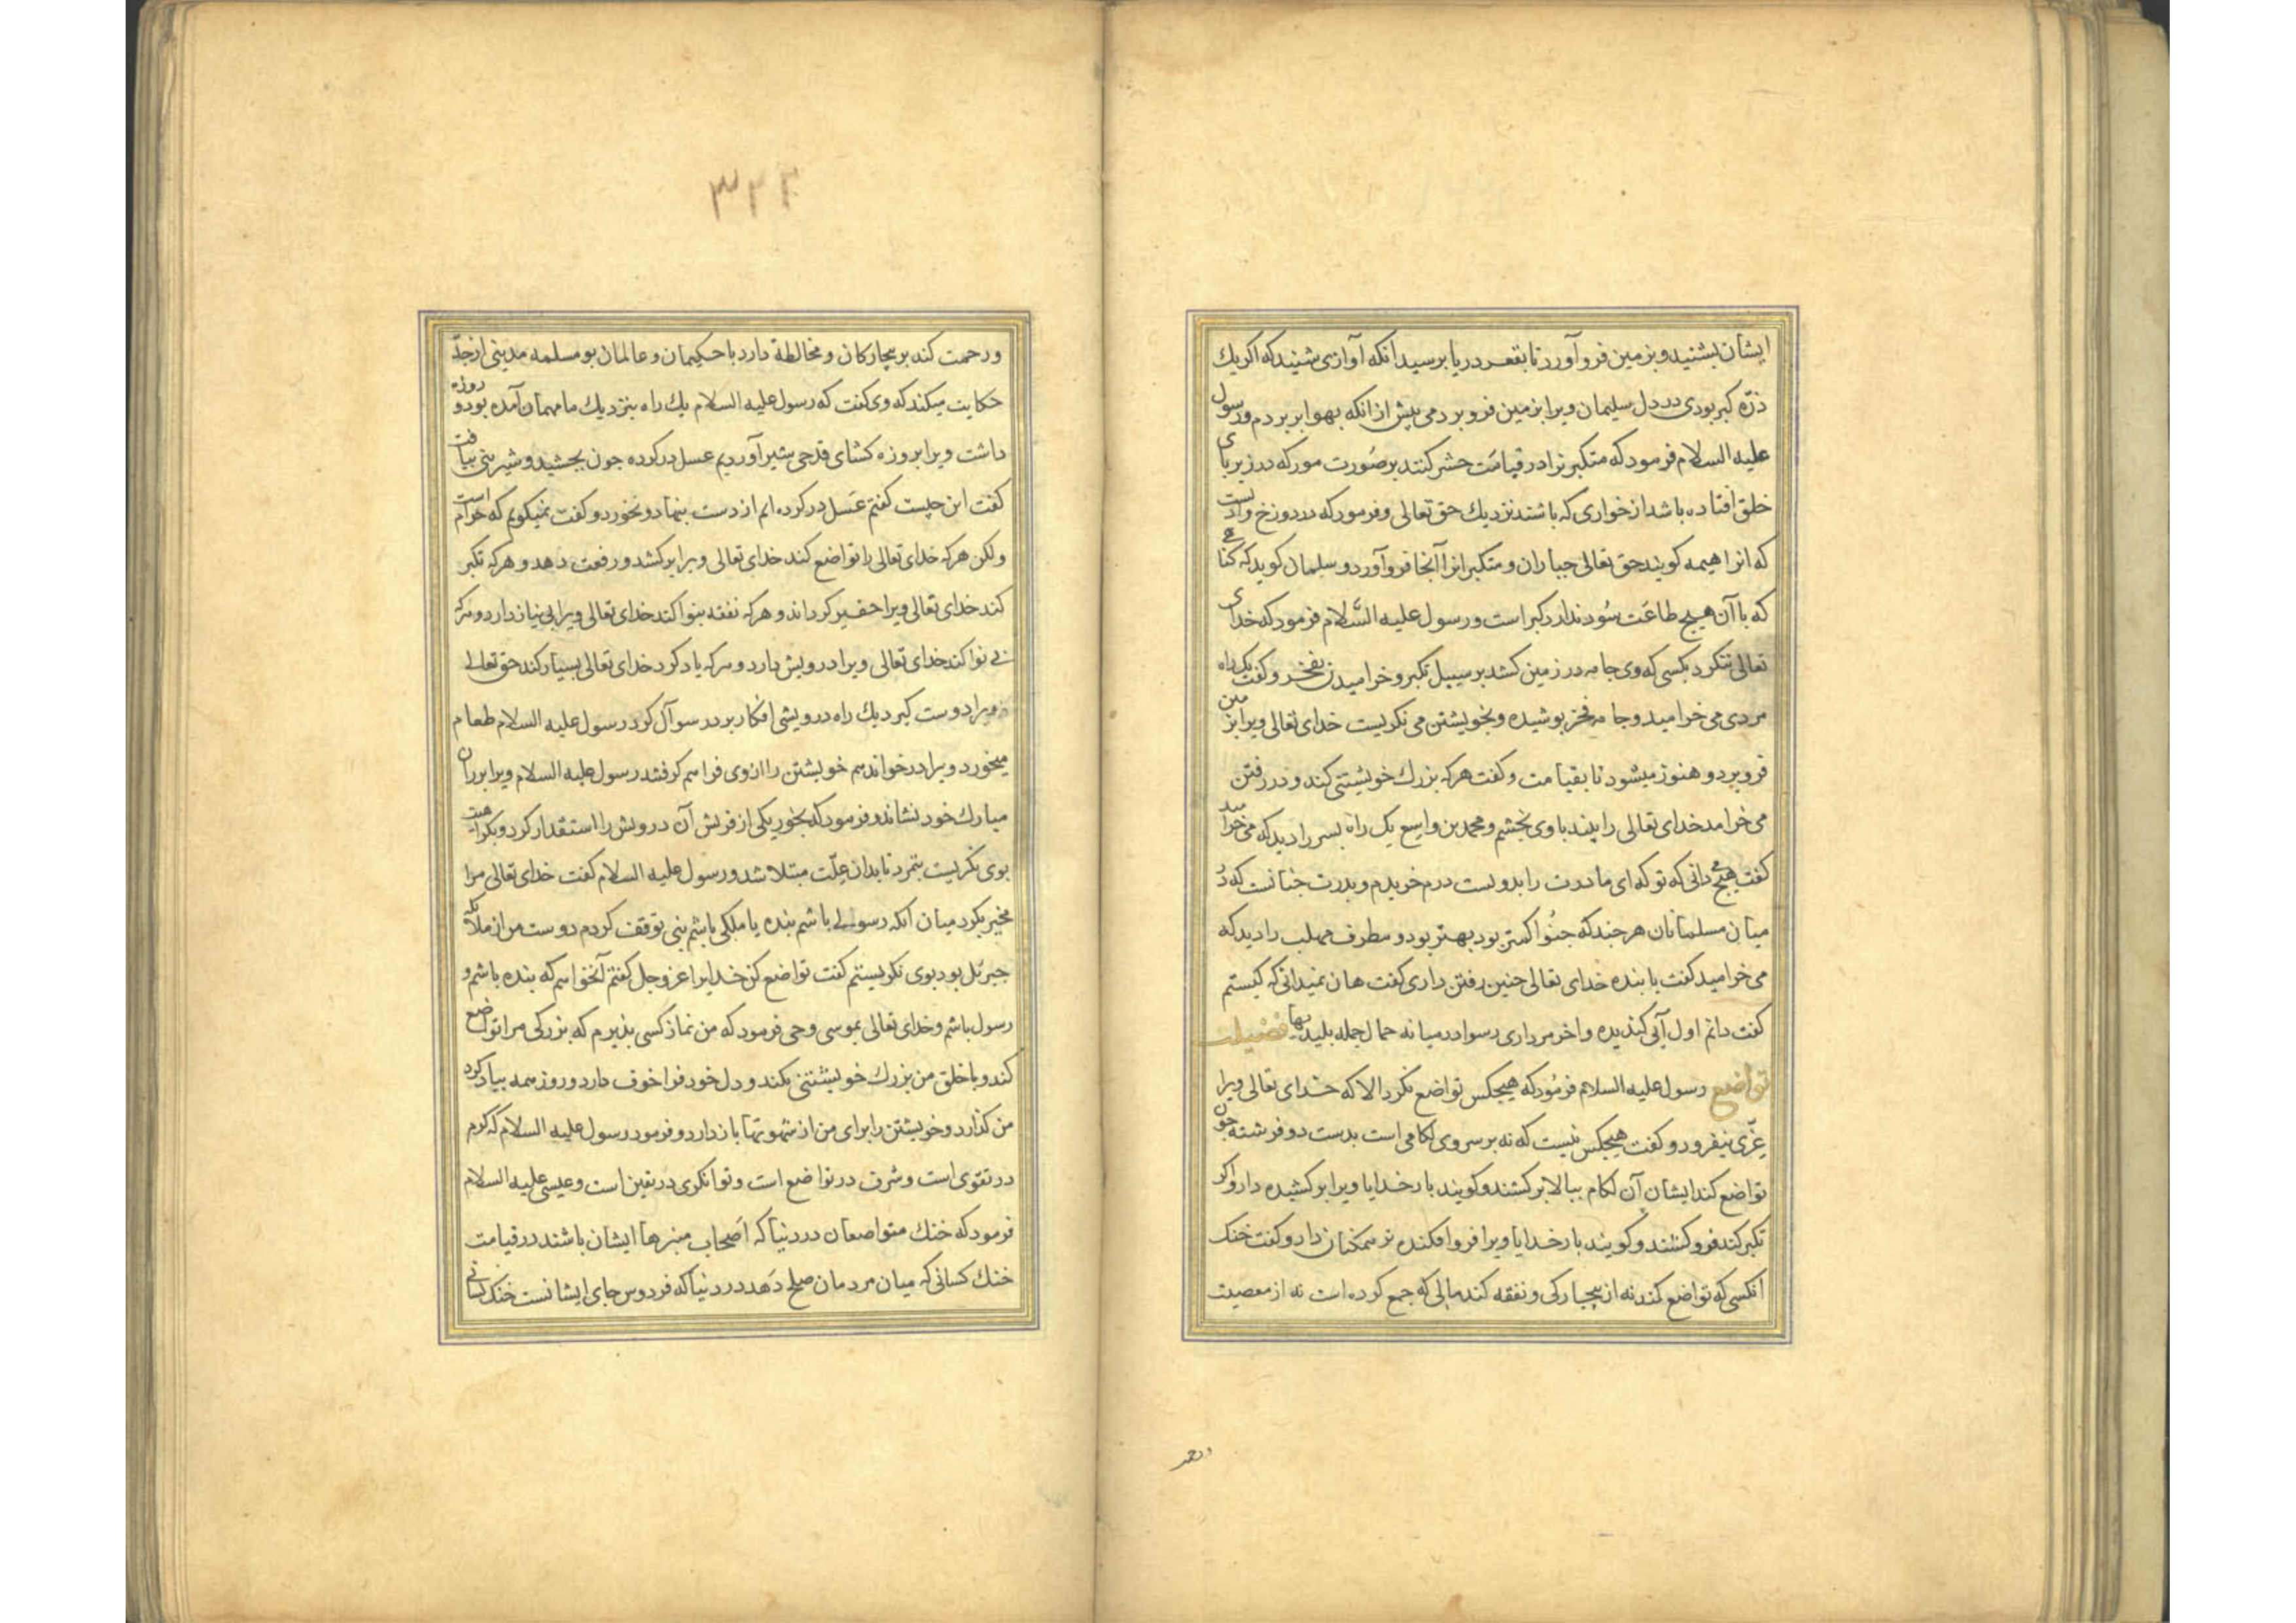 ایشان بشنید و بزمین فرو آورد تا بقعر دریا برسید انکه آوازی شنید که اکر یك
ذرّه کبر بودی در دل سلیمان ویرا بزمین فرو بردمی پیش از انکه بهوا بر بردم و رسول
علیه السلام فرمود که متکبر نرا در قیامت حشر کنند بر صورت مور که در زیر پای
خلق افتاده باشد از خواری که باشند نزدیك حق تعالی و فرمود که در دوزخ وادیست
که انرا هیهه کویند حق تعالی جباران و متکبرانرا آنجا فرو آورد و سلیمان کوید که کناهی
که با آن هیچ طاعت سود ندارد کبر است و رسول علیه السّلام فرمود که خدای
تعالی ننکرد بکسی که وی جامه در زمین کشد بر سبیل تکبر و خرامیدن بفخر و کفت یک راه
مردی می خرامید و جامه فخر بوشیده و بخویشتن می نکریست خدای تعالی ویرا بزمین
فرو برد و هنوز میشود تا بقیامت و کفت هر که بزرك خویشتنی کند و در رفتن
می خرامد خدای تعالی را بیند با وی بخشم و محمد بن واسع یک راه بسر را دید که می خرامید
کفت هیچ می دانی که تو که ای مادرت را بدویست درم خریدم و بدرت جنانست که در
میان مسلمانان هر جند که جنو اکمتر بود بهتر بود و مطرف مهلب را دید که
می خرامید کفت یا بنده خدای تعالی جنین رفتن داری کفت هان نمیدانی که کیستم
کفت دانم اول آبی کندیده و اخر مرداری رسوا در میانه حمال جمله بلیدیها فضیلت
تواضع رسول علیه السلام فرمُود که هیجکس تواضع نکرد الا که خدای تعالی ویرا
عزّی بیفزود و کفت هیجکس نیست که نه بر سر وی لکامی است بدست دو فرشته جون
تواضع کند ایشان آن لکام ببالا بر کشند و کویند بار خدایا ویرا بر کشیده دار و اکر
تکبر کند فرو کشند و کویند بار خدایا ویرا فرو افکنده و کفت خنك
انکسی که تواضع کند نه از بیجارکی و نفقه کند مالی که جمع کرده است نه از معصیت
ورحمـ
۳۲۲
و رحمت کند بر بیجارکان و مخالطة دارد با حکیمان و عالمان بو مسلمه مدینی از جدّ
حکایت میکند که وی کفت که رسول علیه السلام یك راه بنزدیك ما مهمان آمده بود و روزه
داشت ویرا بروزه کشای قدحی شیر آوردیم عسل در کرده جون بجشید و شیرینی بیافت
کفت این جیست کفتم عَسل در کرده ایم از دست بنهاد و نخورد و کفت نمیکویم که حرام است
ولکن هر که خدای تعالی را تواضع کند خدای تعالی ویرا بر کشد و رفعت دهد و هر که تکبر
کند خدای تعالی ویرا حقیر کرداند و هر که نفقه بنوا کند خدای تعالی ویرا بی نیاز دارد و هر که
بی نوا کند خدای تعالی ویرا درویش دارد و هر که یاد کرد خدای تعالی بسیار کند حق تعالی
ویرا دوست کیرد یك راه درویشی افکار بر در سوآل کرد رسول علیه السلام طعام
میخورد ویرا در خواند هم خویشتن را ازوی فراهم کرفتند رسول علیه السلام ویرا بر ران
مبارك خود نشاند و فرمود که بخور یکی از قریش آن درویش را استقذار کرد و بکراهیت
بوی نکریست بنمرد تا بدان علّت مبتلا شد و رسول علیه السلام کفت خدای تعالی مرا
مخیر بکرد میان انکه رسولی باشم بنده یا ملکی باشم بنی توقف کردم دوست من از ملایکه
جبرئل بود بوی نکریستم کفت تواضع کن خدایرا عز و جل کفتم آنخواهم که بنده باشم و
رسول باشم و خدای تعالی بموسی وحی فرمود که من نماز کسی بذیرم که بزرکی مرا تواضع
کند و با خلق من بزرك خویشتنی نکند و دل خود فرا خوف دارد و روز همه بیاد کرد
من کذارد و خویشتن را برای من از شهوتها باز دارد و فرمود رسول علیه السلام که کرم
در تقوی است و شرف در تواضع است و توانکری در یقین است و عیسی علیه السلام
فرمود که خنك متواضعان در دنیا که اَصحاب منبرها ایشان باشند در قیامت
خنك کسانی که میان مردمان صلح دَهد در دنیا که فردوس جای ایشانست خنك کسانی